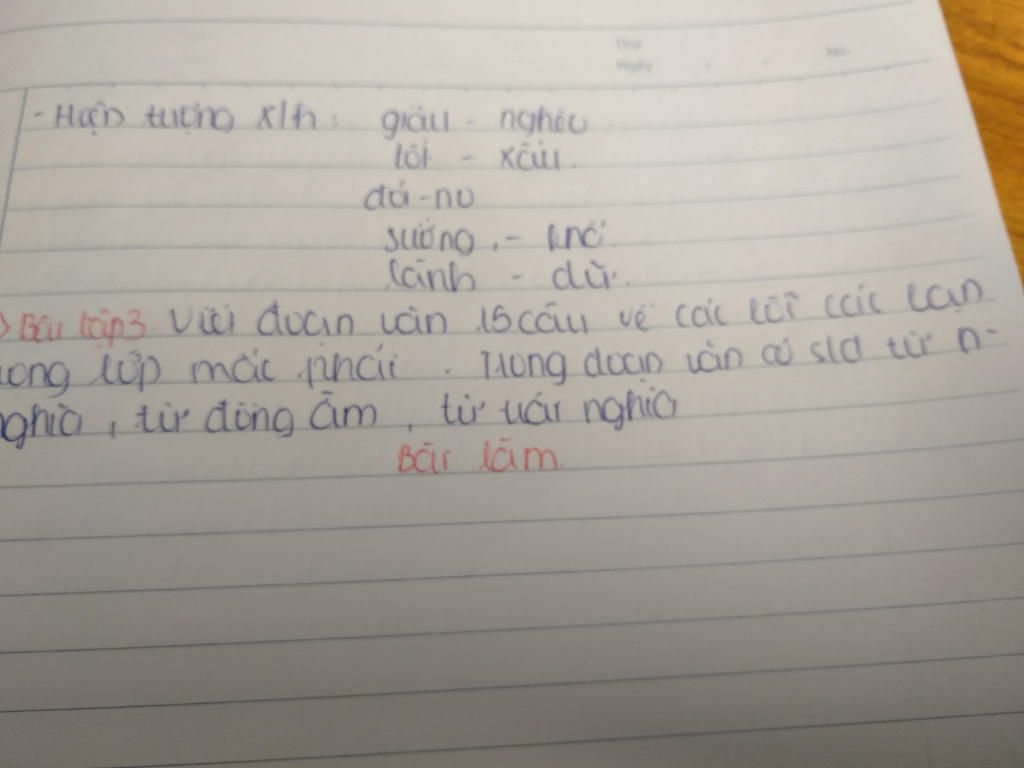 Thứ
Ngày No.
- Hiện tượng x/h: giàu - nghèo
tốt - xấu.
đói - no
sướng - khổ.
lành - dữ.
Bài tập 3. Viết đoạn văn 15 câu về các lỗi các bạn
trong lớp mắc phải. Trong đoạn văn có sd từ n-
nghĩa, từ đồng âm, từ trái nghĩa
Bài làm.